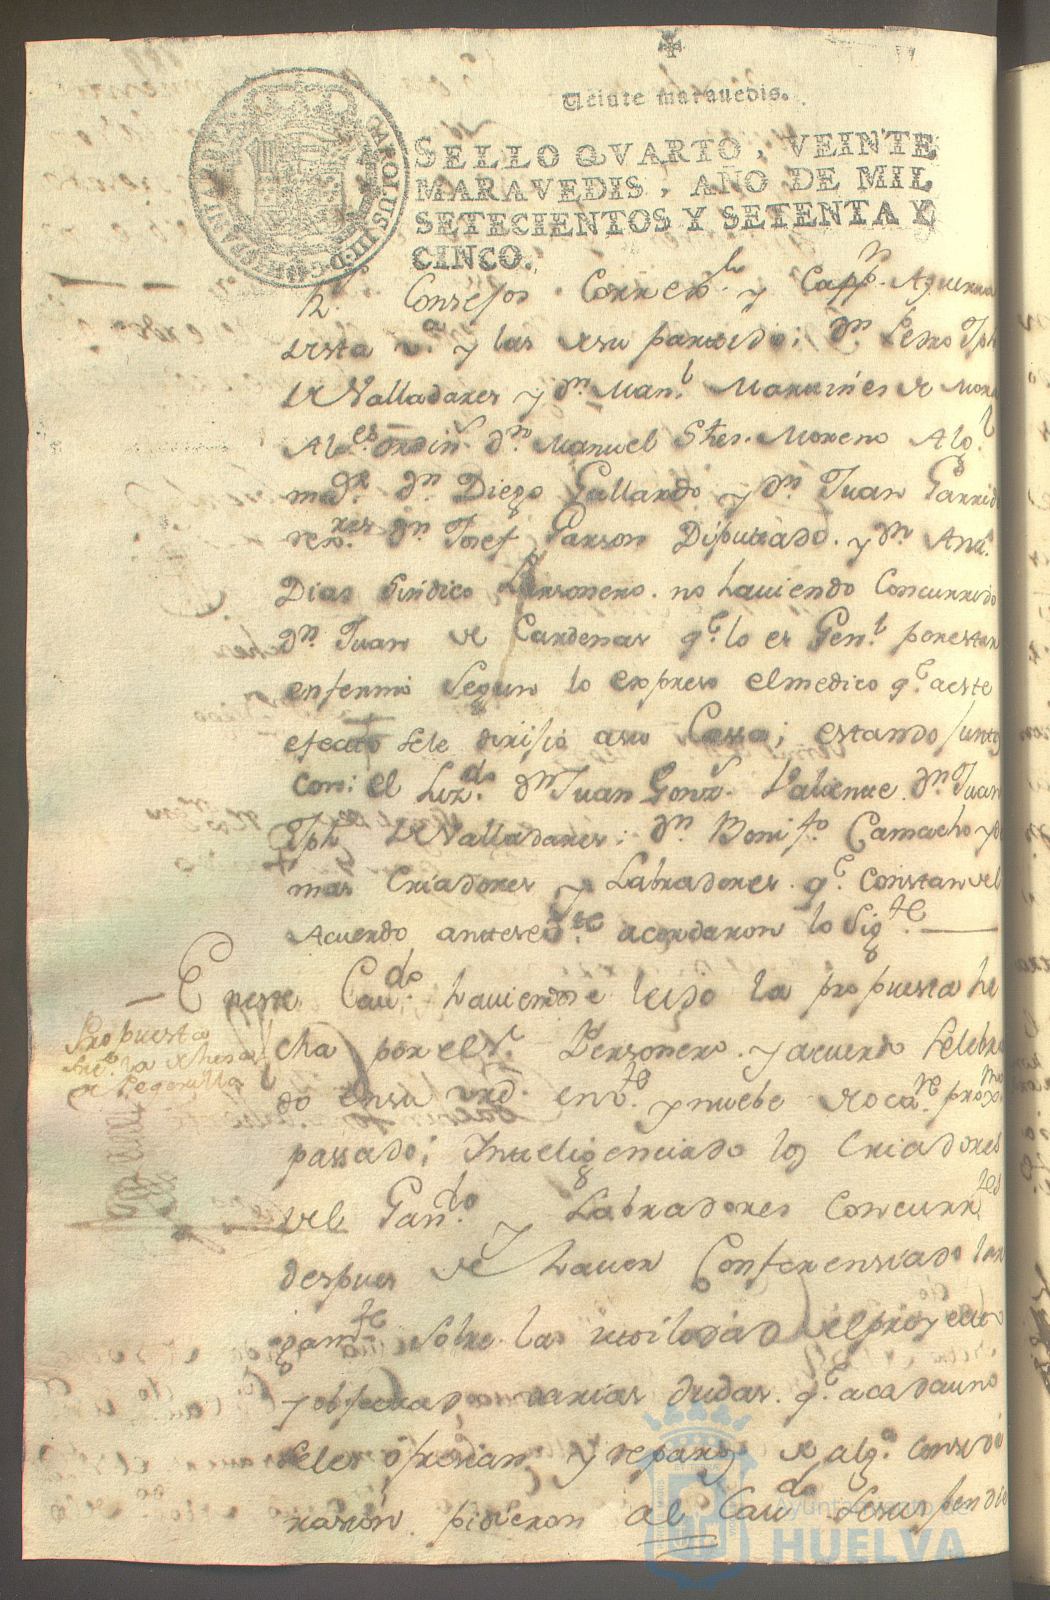 Veinte maravedis.
SELLO QVARTO, VEINTE
MARAVEDIS, AÑO DE MIL
SETECIENTOS Y SETENTA Y
CINCO.
CAROLUS III D.G. HISPANIAR
Consejos Correxr. y Cappn. Aguerra
desta va. y las desu partido; Dn. Pedro Jph
de Valladares y Dn. Manl. Martines de Mora
Ales. ordins. Dn. Manuel Shes. Moreno Algl.
mor. Dn. Diego Gallardo y Dn. Juan Garrido
rexres. Dn. Josef Garson Diputado. y Dn. Anto.
Dias Sindico Personero. no haviendo Concurrido
Dn. Juan de Cardenas qe. lo es Genl. por estar
enfermo Segun lo expreso elmedico qe. aeste
efecto sele dirijió asu Cassa; estando Junto
con: el Lizdo. Dn Juan Gonzs. Valiente. Dn. Juan
Jph de Valladares: Dn Bonifo. Camacho y d
mas Criadores y Labradores. qe. Constan del
Acuerdo anteredte. acordaron lo Sigte.
Eneste Cavdo. haviendose leido la propuesta he
cha por el Sr. Personero. y acuerdo Selebra
do ensu vrd. en vte. ynuebe de oc
passado; Inteligenciado los Criadores
del Gando. y Labradores Concurrtes
despues de haver Conferensiado lar
gamte. Sobre las utilidad delproyecto
y objectad varias dudas. qe. acadauno
seles ofresian y reparos de alga. conside
rasion. pidieron al Cavdo. Sesuspendie
Propuesta
sre. la dehesa
de Pegerilla
Ayuntamiento de
HUELVA